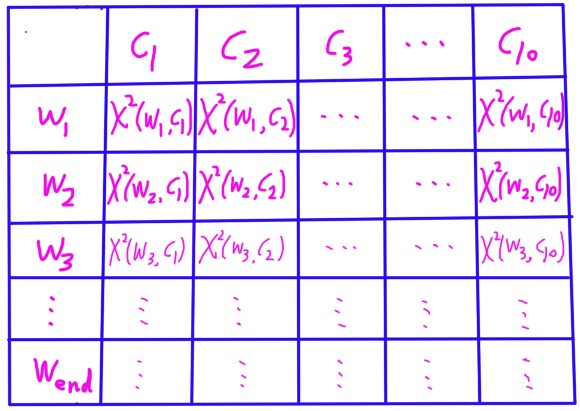 C₁ C₂ C₃ ... C₁₀
W₁ χ²(W₁,C₁) χ²(W₁,C₂) ... ... χ²(W₁,C₁₀)
W₂ χ²(W₂,C₁) χ²(W₂,C₂) ... ... χ²(W₂,C₁₀)
W₃ χ²(W₃,C₁) χ²(W₃,C₂) ... ... χ²(W₃,C₁₀)
⋮ ⋮ ⋮ ⋮ ⋮ ⋮
Wend ⋮ ⋮ ⋮ ⋮ ⋮